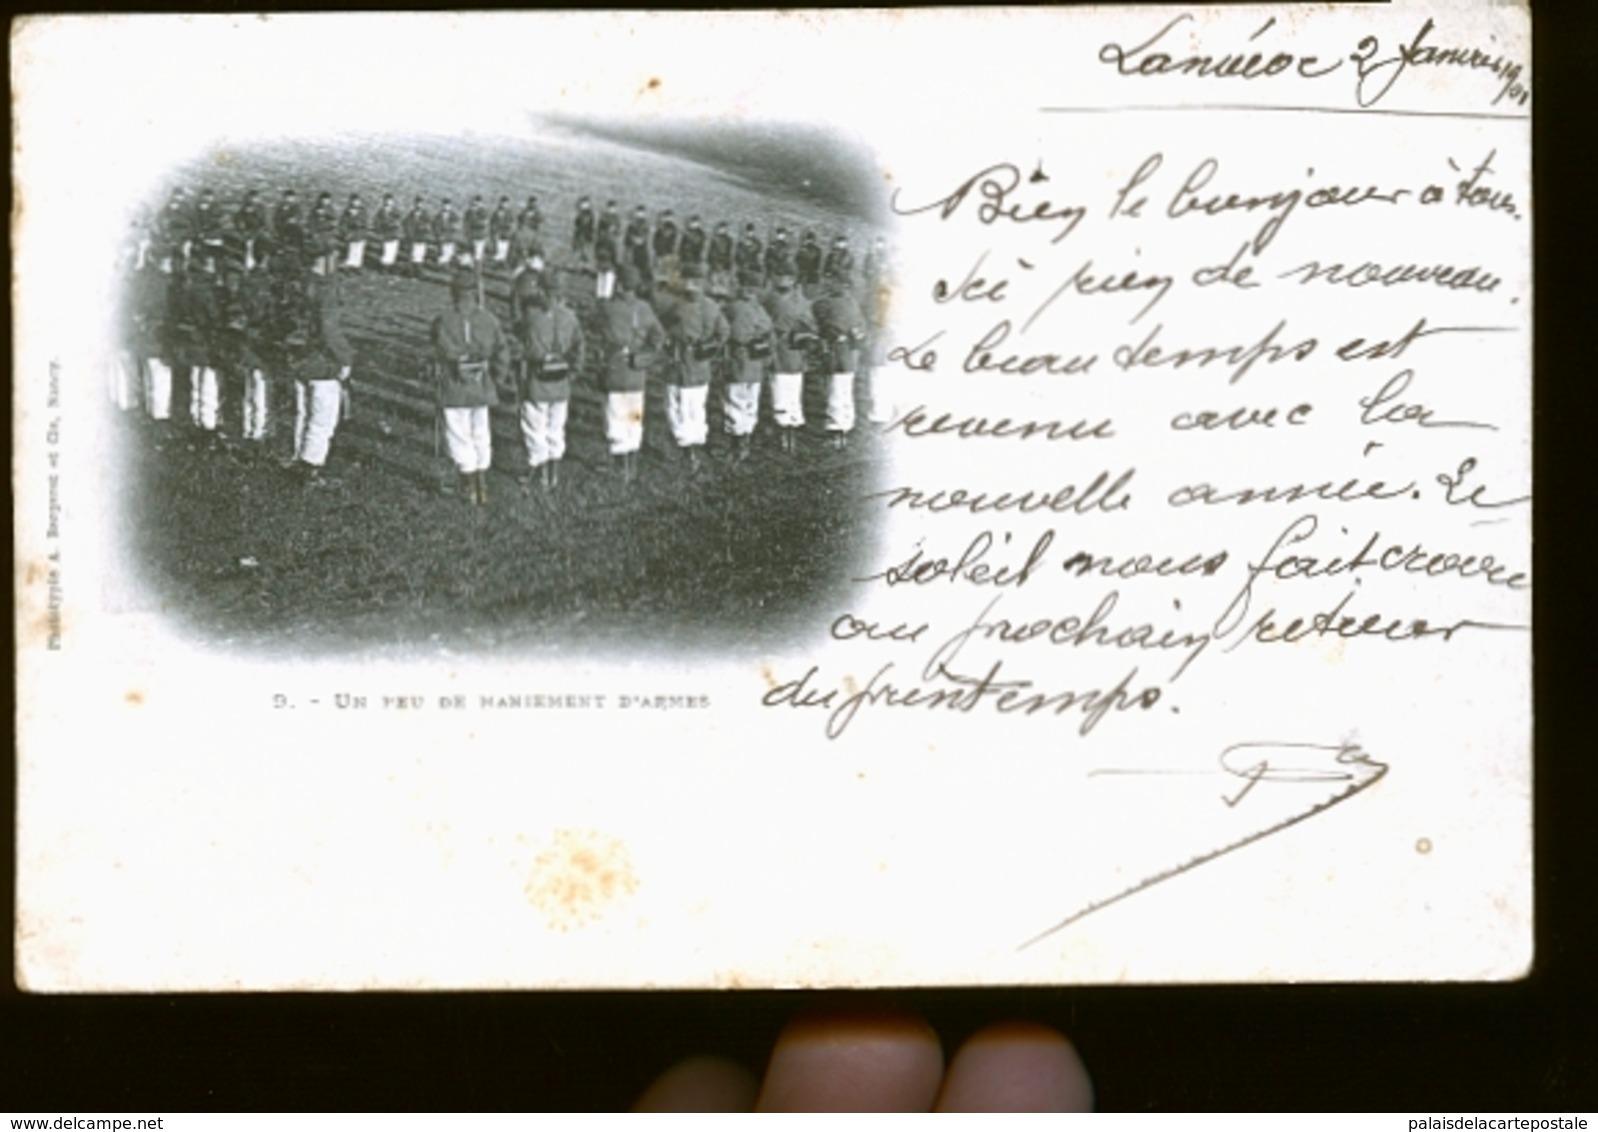 Lanvéoc 2 Janvier 1901
Bien le bonjour à tous.
Ici rien de nouveau.
Le beau temps est
revenu avec la
nouvelle année. Le
soleil nous fait croire
au prochain retour
du printemps.
9. - UN PEU DE MANIEMENT D'ARMES
Phototypie A. Bergeret et Cie, Nancy.
www.delcampe.net
palaisdelacartepostale